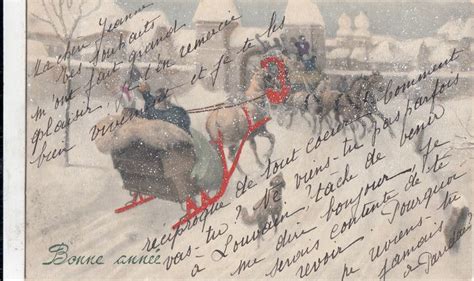 Ma chère Jeanne
Tes souhaits
m'ont fait grand
plaisir, je t'en remercie
bien vivement et je te les
réciproque de tout coeur. Comment
vas-tu? Ne viens-tu pas parfois
à Louvain, tâche de venir
me dire bonjour, je
serais contente de te
revoir. Pourquoi
ne reviens-tu
jamais
à
Bonne année